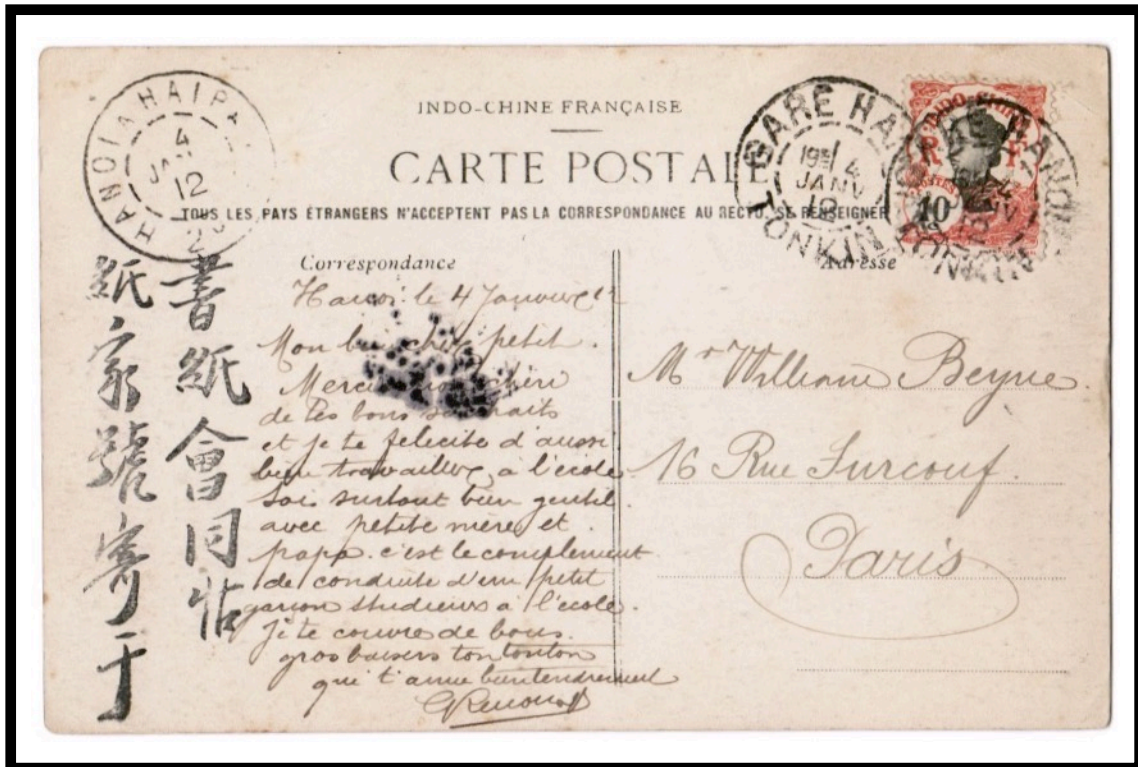 INDO-CHINE FRANÇAISE
CARTE POSTALE
TOUS LES PAYS ÉTRANGERS N'ACCEPTENT PAS LA CORRESPONDANCE AU RECTO. SE RENSEIGNER
HANOI A HAIP
4
JAN
12
GARE HANOI
4
JANV
12
TONKIN
GARE HANOI
TONKIN
INDO-CHINE
R F
10
Correspondance
Hanoi le 4 Janvier 12
Mon bien cher petit.
Merci mon chéri
de tes bons souhaits
et je te felicite d'aussi
bien travailler à l'école
sois surtout bien gentil
avec petite mère et
papa. c'est le complement
de conduite d'un petit
garçon studieux à l'école.
Je te couvre de bons
gros baisers ton tonton
qui t'aime bien tendrement
Adresse
Mr William Beyne.
16 Rue Surcouf.
Paris
書紙會同帖
紙家號寄于